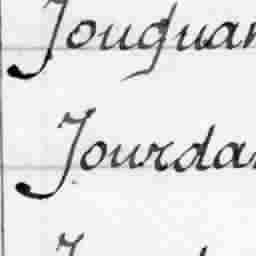 Jouguan
Jourdan